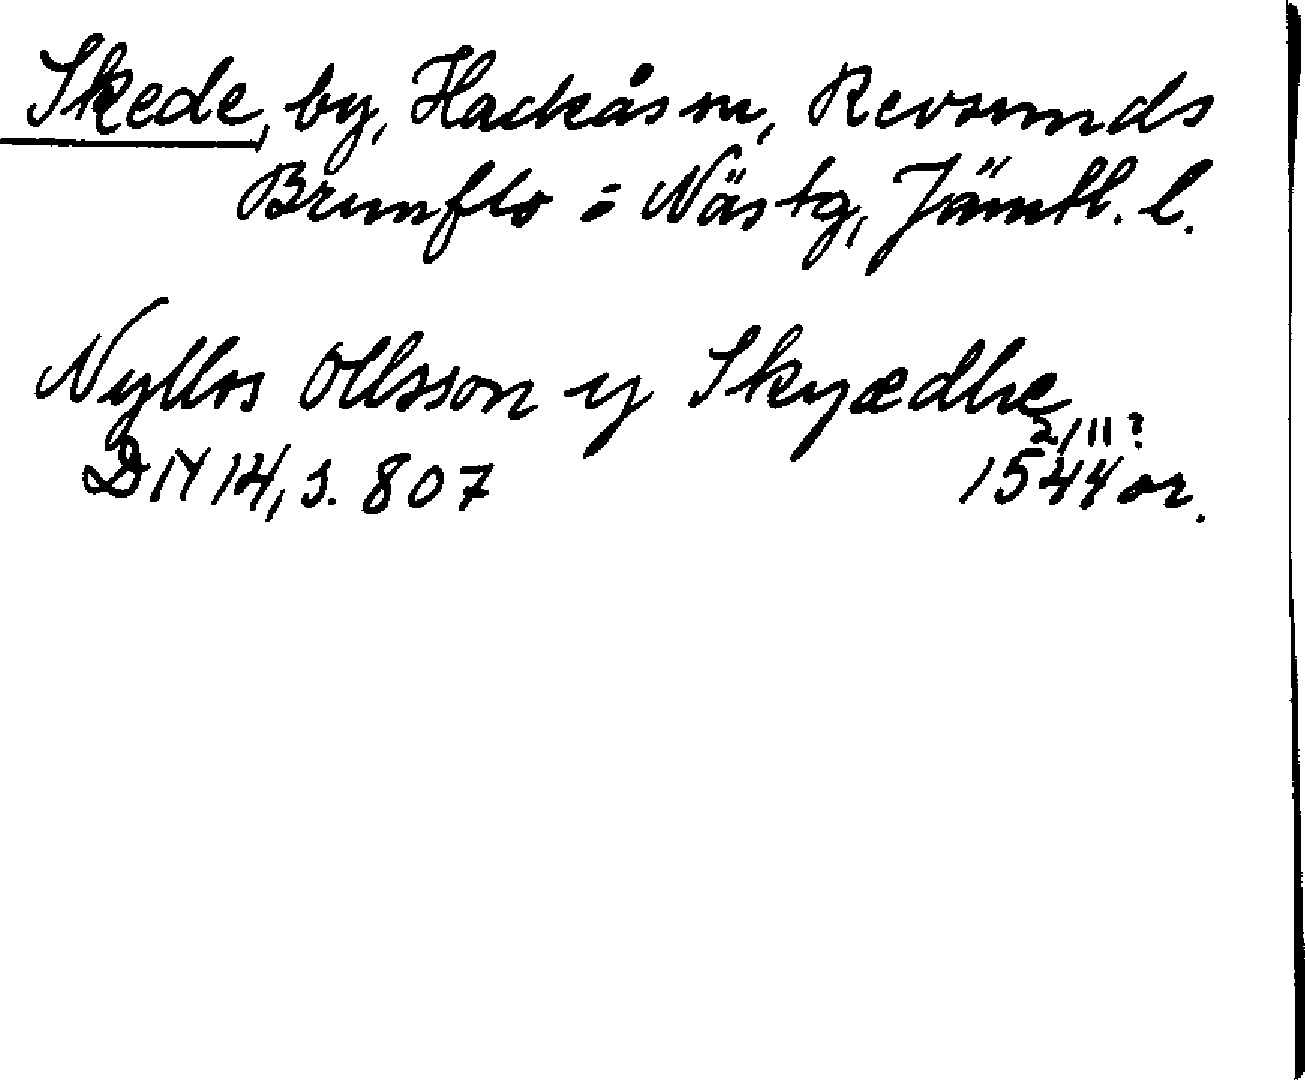 Skede, by, Hackås sn, Revsunds
Brunflo o Näs tg, Jämtl. l.
Nyllos Ollsson y Skyædhe
2/11?
DN 14, s. 807 1544 or.